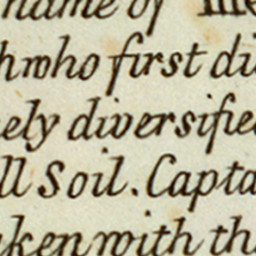 name of the
h who first di
ely diversifie
ll Soil. Capta
aken with th